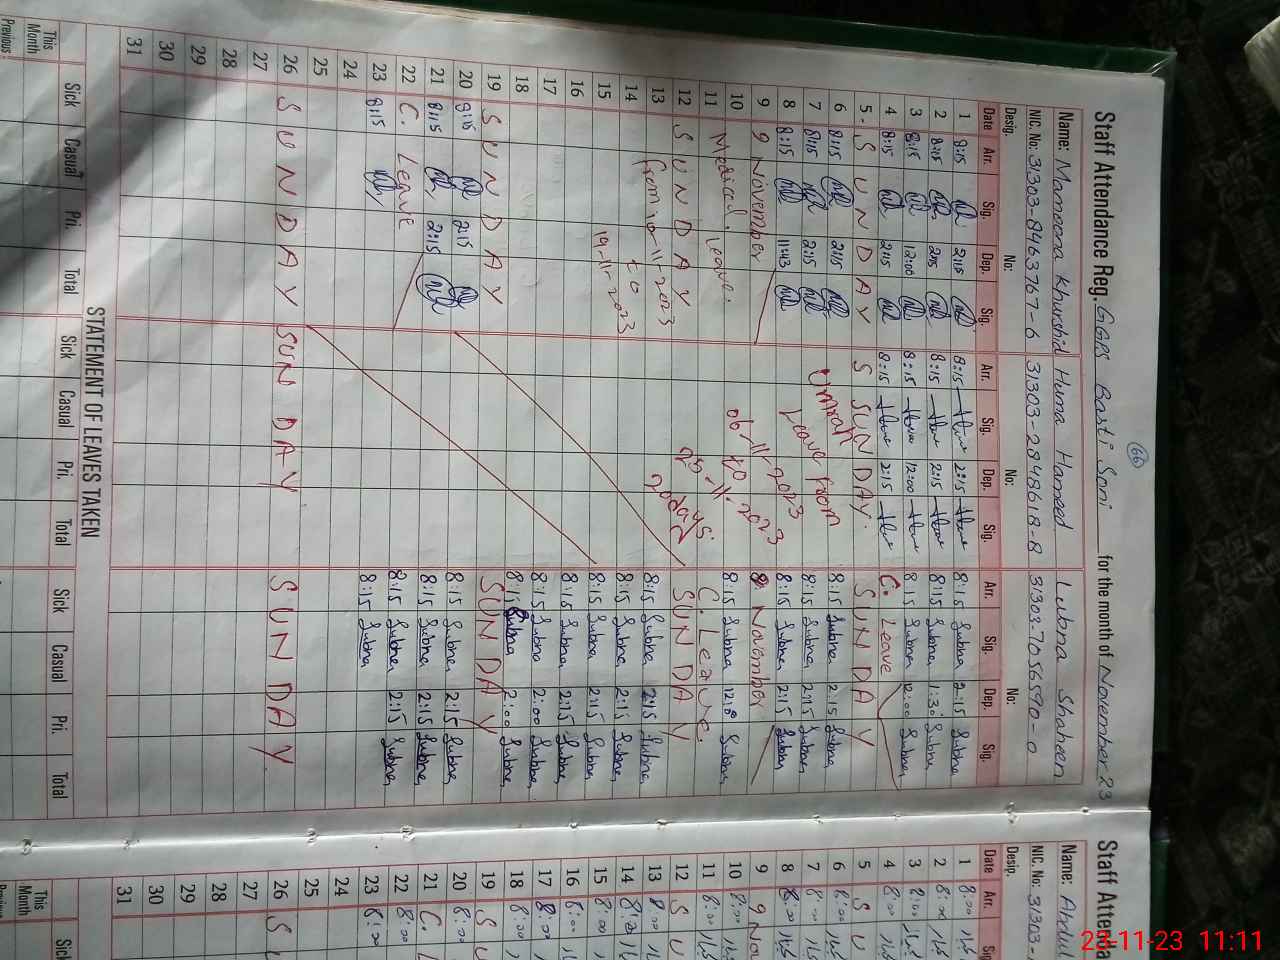 66
Staff Attendance Reg. GGPS Basti Soni for the month of November 23
Name: Mamoona Khurshid Huma Hameed Lubna Shaheen
NIC. No. 31303-8463767-6 31303-2848618-8 31303-7056590-0
Desig. No: No: No:
Date Arr. Sig. Dep. Sig. Arr. Sig. Dep. Sig. Arr. Sig. Dep. Sig.
1 8:15 2:15 8:15 Huma 2:15 Huma 8:15 Lubna 2:15 Lubna
2 8:15 2:15 8:15 Huma 2:15 Huma 8:15 Lubna 1:30 Lubna
3 8:15 12:00 8:15 Huma 12:00 Huma 8:15 Lubna 12:00 Lubna
4 8:15 2:15 8:15 Huma 2:15 Huma C. Leave
5 S U N D A Y S SUNDAY. SUNDAY
6 8:15 2:15 8:15 Lubna 2:15 Lubna
7 8:15 2:15 8:15 Lubna 2:15 Lubna
8 8:15 11:43 8:15 Lubna 2:15 Lubna
9 9 November 9 November
10 8:15 Lubna Lubna
11 C. Leave.
12 S U N D A Y SUNDAY
13 8:15 Lubna 2:15 Lubna
14 8:15 Lubna 2:15 Lubna
15 8:15 Lubna 2:15 Lubna
16 8:15 Lubna 2:15 Lubna
17 8:15 Lubna 2:00 Lubna
18 8:15 Lubna 2:00 Lubna
19 S U N D A Y SUNDAY
20 8:15 2:15 8:15 Lubna 2:15 Lubna
21 8:15 2:15 8:15 Lubna 2:15 Lubna
22 C. Leave 8:15 Lubna 2:15 Lubna
23 8:15 8:15 Lubna
24
25
26 S U N D A Y SUN DAY SUN DAY
27
28
29
30
31
Medical Leave.
from 10-11-2023
to
19-11-2023
Umrah
Leave from
06-11-2023
to
25-11-2023
20 days.
STATEMENT OF LEAVES TAKEN
Sick Casual Pri. Total Sick Casual Pri. Total Sick Casual Pri Total
This Month
Previous
Staff Attenda
Name: Abdul
NIC. No. 31303.
Desip.
Date Arr. Sig
1 8:00
2 8:00
3 8:00
4 8:00
5 S U
6 8:00
7 8:00
8 8:00
9 9 Nov
10 8:00
11 8:00
12 S U
13 8:00
14 8:00
15 8:00
16 8:00
17 8:00
18 8:00
19 S U
20 8:00
21 C. L
22 8:00
23 8:00
24
25
26 S
27
28
29
30
31
Sick
This Month
Previous
23-11-23 11:11